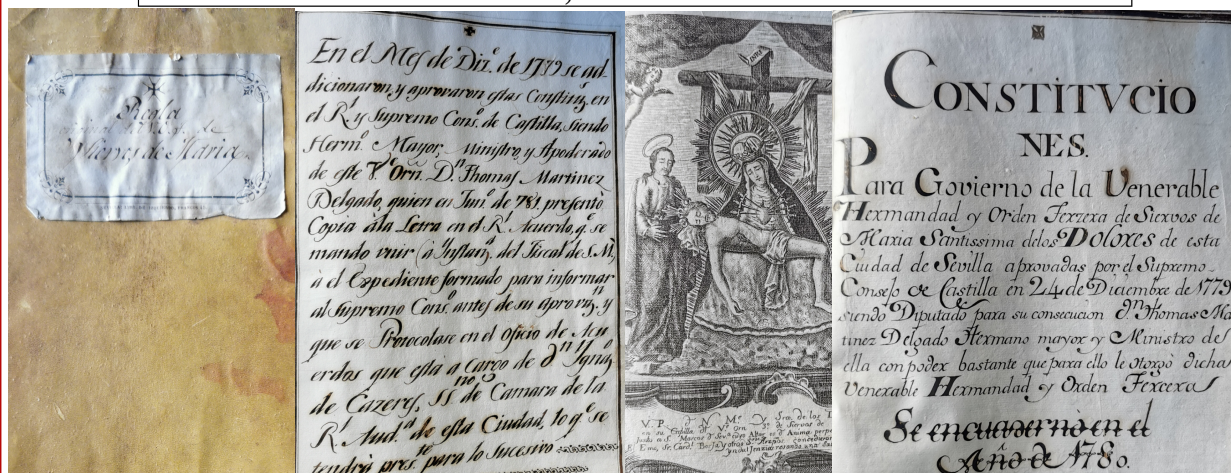 Regla
Siervos de Maria
En el Mes de Diz.ᵉ de 1779 se ad
dicionaron, y aprovaron estas Constituz.ˢ en
el R.ˡ y Supremo Cons.º de Castilla, siendo
Herm.º Mayor, Ministro, y Apoderado
de este V.º Orn. D.ⁿ Thomas Martinez
Delgado, quien en Jun.º de 781 presentó
Copia àla Letra en el R.ˡ Acuerdo, q.ᵉ se
mando vnir (à Instanz.ᵃ del Fiscal de S.M.)
à el Expediente formado para informar
al Supremo Cons.º antes de su aprovaz.ⁿ y
que se Protocolase en el Oficio de Acu
erdos que esta a cargo de d.ⁿ Ignaz.º
de Cazeres, SS.ⁿº de Camara de la
R.ˡ Aud.ᵃ de esta Ciudad, lo q.ᵉ se
tendrá pres.ᵗᵉ para lo sucesivo
V. P. d N. M.ᵉ y Sra. de los
en su Capilla d V.º Orn 3.ª de Siervos de
CONSTITVCIO
NES.
Para Govierno de la Venerable
Hermandad y Orden Terzera de Siervos de
Maria Santissima delos Dolores de esta
Ciudad de Sevilla aprovadas por el Supremo
Consejo de Castilla en 24 de Diciembre de 1779
siendo Diputado para su consecucion d.ⁿ Thomas Ma
tinez Delgado Hermano mayor y Ministro de
ella con poder bastante que para ello le otorgò dicha
Venerable Hermandad y Orden Tercera
Se encuadernò en el
Año de 1780.